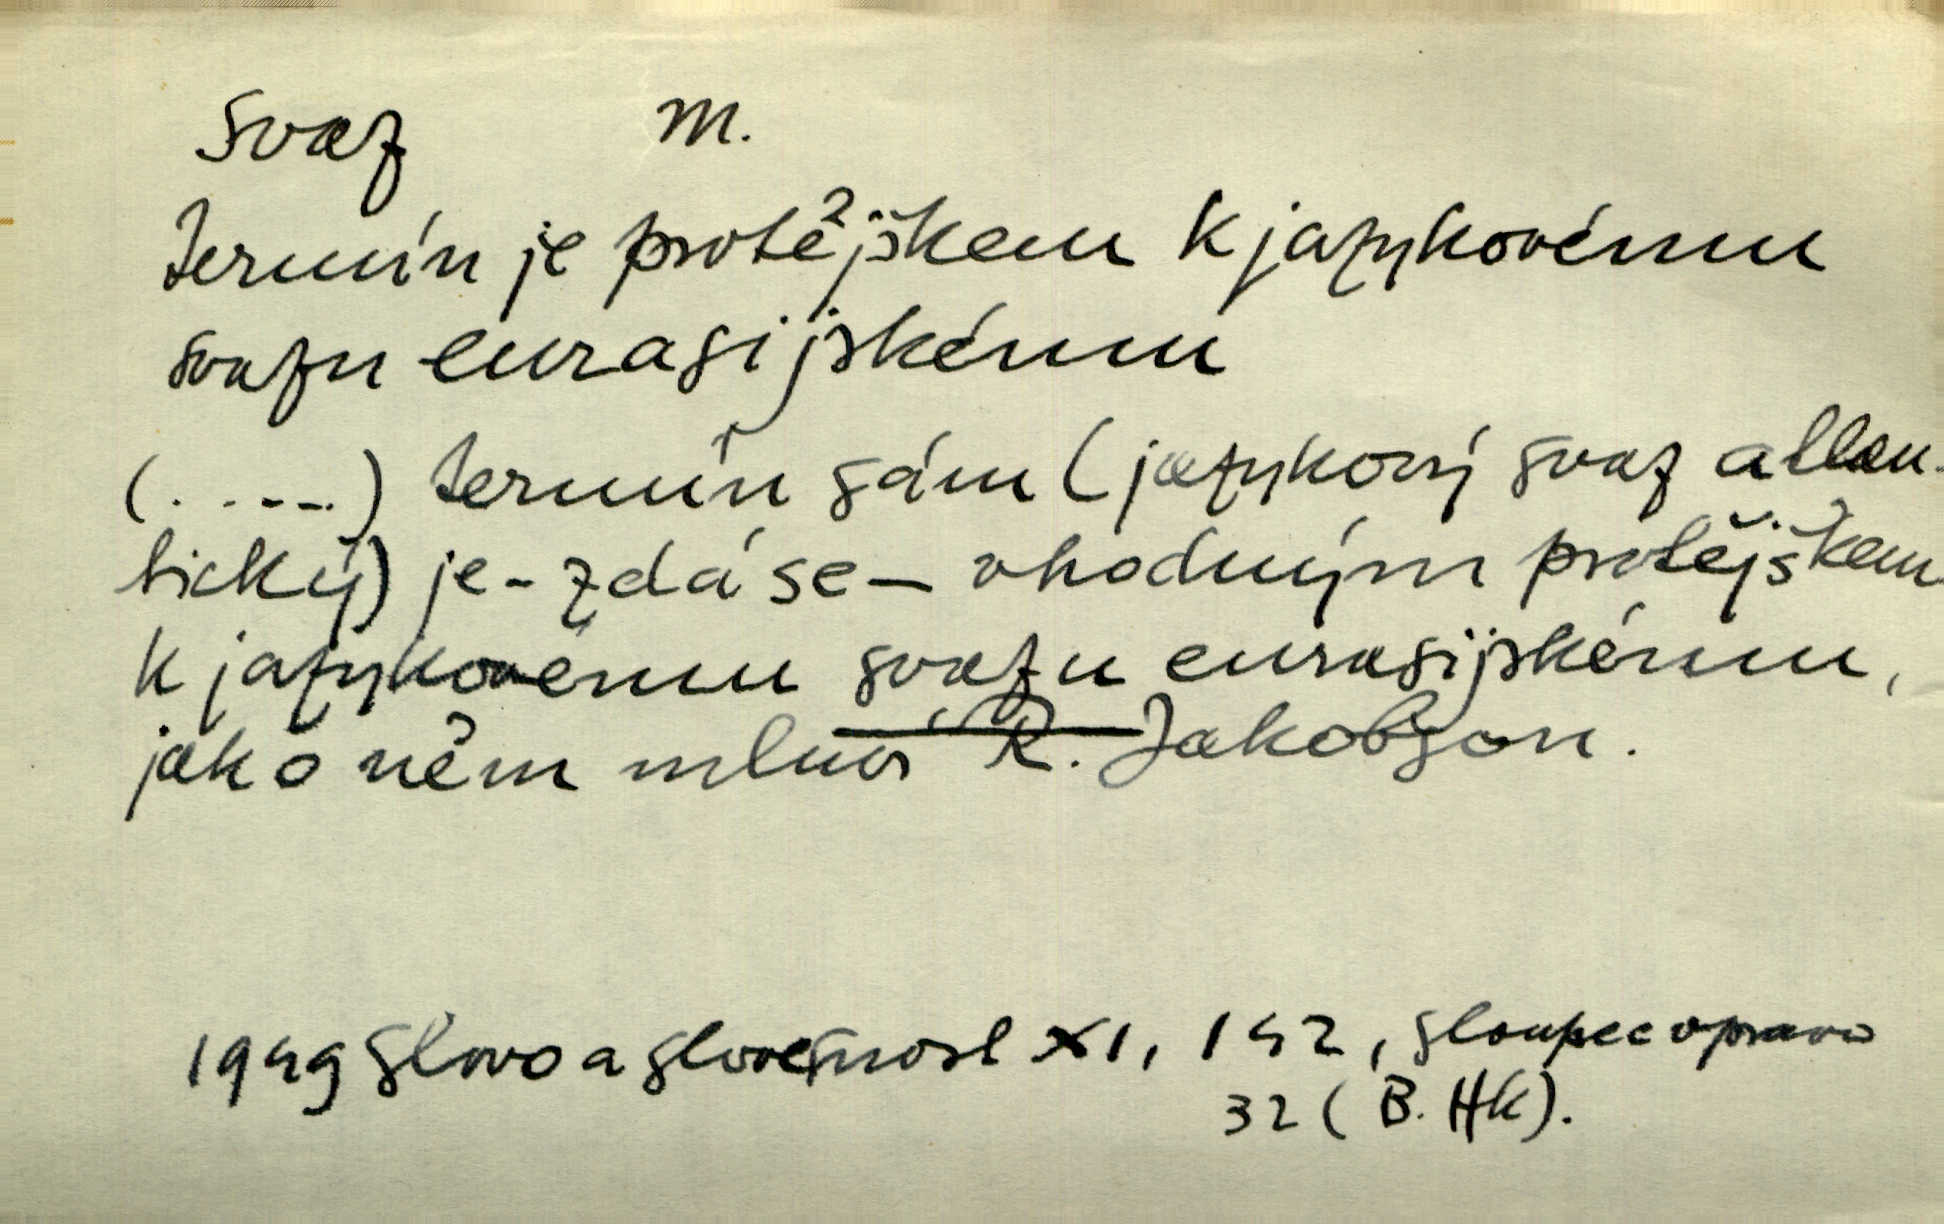 svaz m.
termín je protějškem k jazykovému
svazu eurasijskému
(. . - - - .) termín sám (jazykový svaz atlan-
tický) je - zdá se - vhodným protějškem
k jazykovému svazu eurasijskému,
jak o něm mluví R. Jakobson.
1949 Slovo a slovesnost XI, 142, sloupec vpravo
32 (B. Hk).